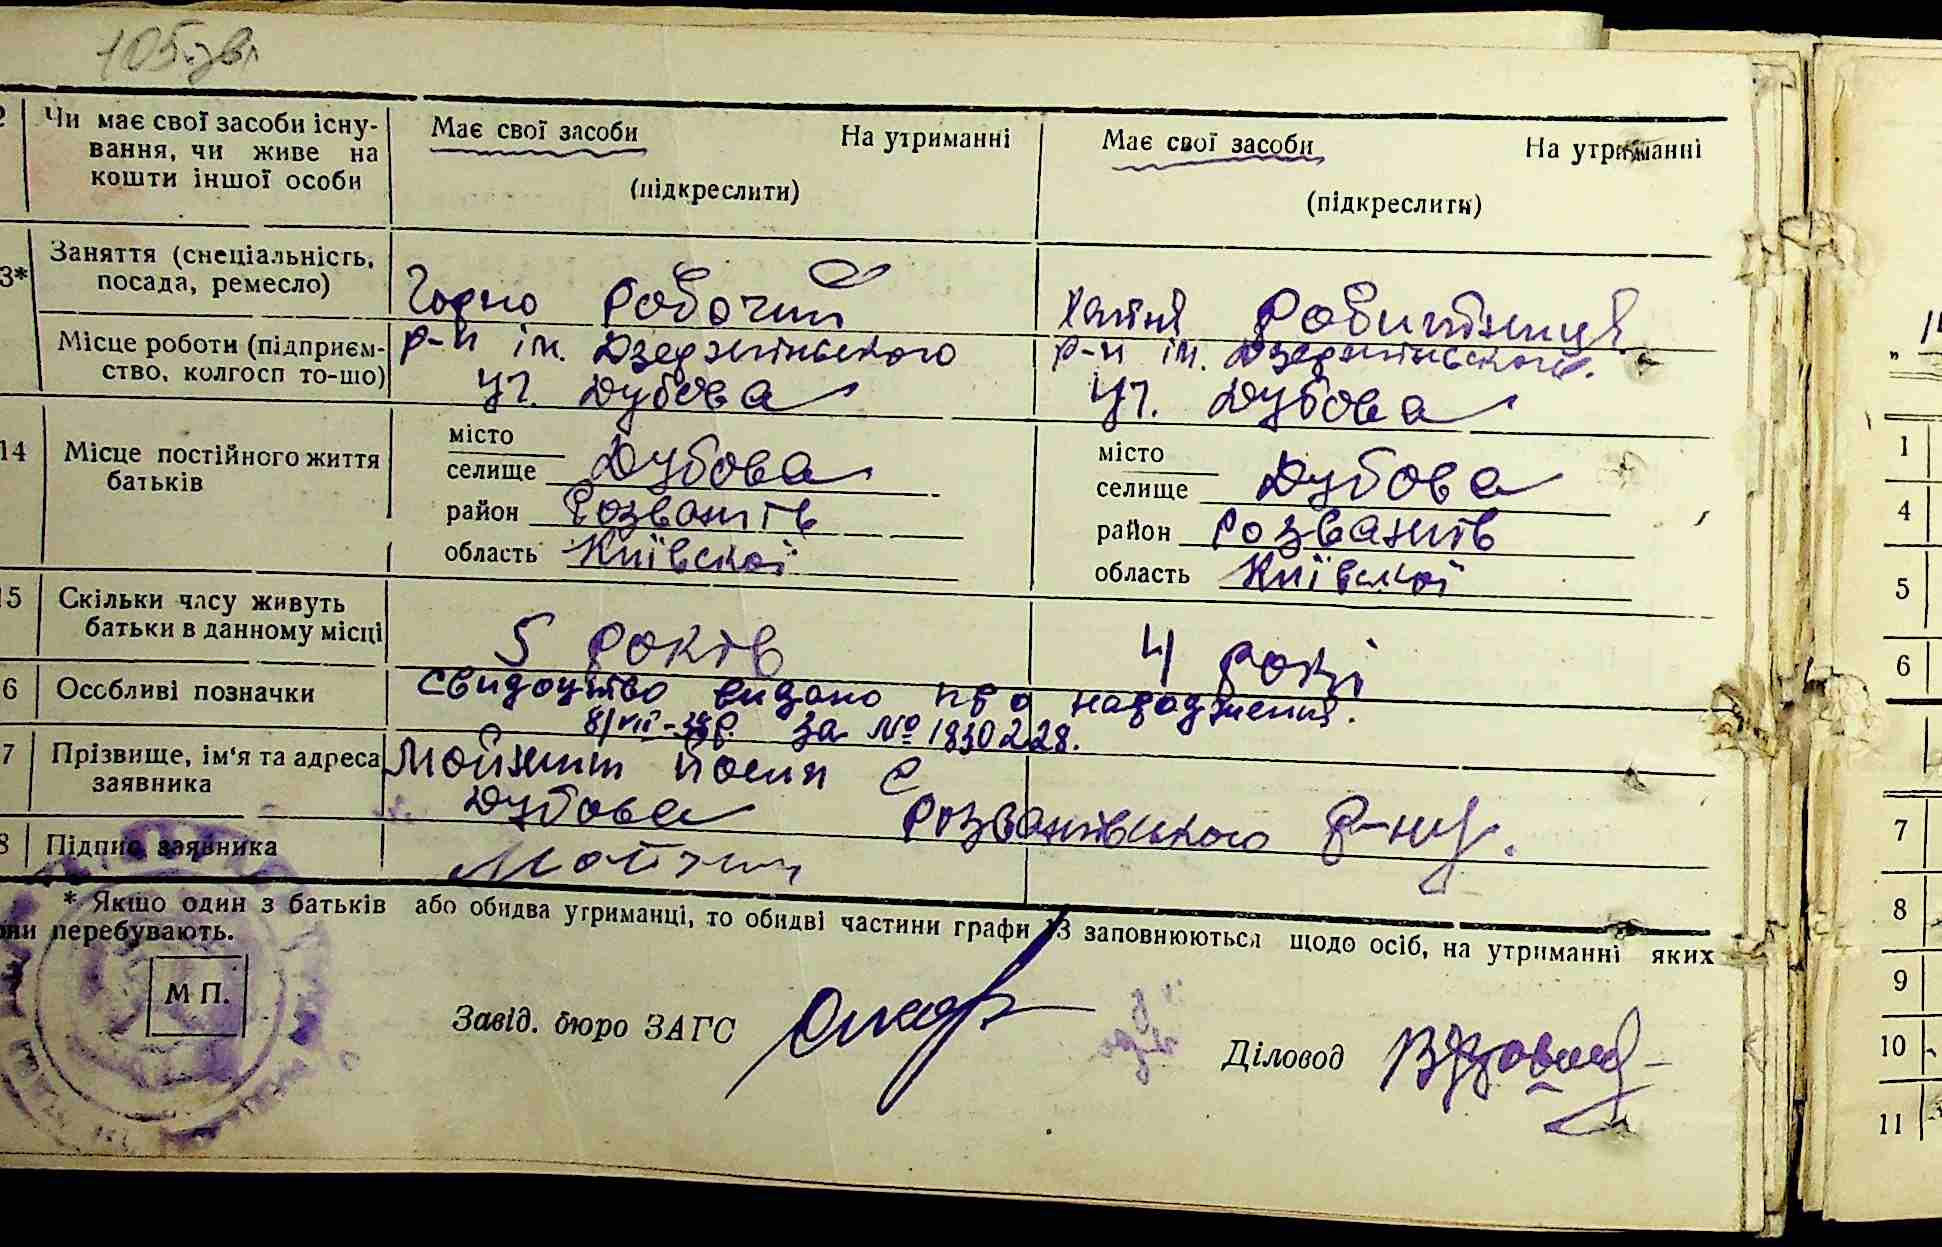 105 зв.
2 Чи має свої засоби існу- Має свої засоби На утриманні Має свої засоби На утриманні
вання, чи живе на
кошти іншої особи (підкреслити) (підкреслити)
3* Заняття (спеціальність,
посада, ремесло) робочий робитниця
Місце роботи (підприєм- р-п ім. Дзержинського р-п ім. Дзержинського
ство, колгосп то-що) уч. Дубова уч. Дубова
14 Місце постійного життя місто місто
батьків селище Дубова селище Дубова
район Розважів район Розважів
область Київської область Київської
15 Скільки часу живуть
батьки в данному місці 5 років 4 рокі
6 Особливі позначки Свидоцтво видано про народження.
8/VIII-38р. за № 1830228.
7 Прізвище, ім'я та адреса
заявника Дубова Розважівського р-ну.
8 Підпис заявника
* Якщо один з батьків або обидва утриманці, то обидві частини графи 13 заповнюються щодо осіб, на утриманні яких
они перебувають.
М П.
Завід. бюро ЗАГС
Діловод
1
4
5
6
7
8
9
10
11